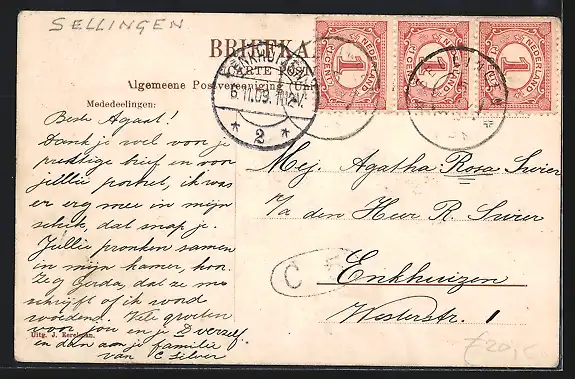 SELLINGEN
BRIEFKA
CARTE POS
Algemeene Postvereeniging (Uni
Mededeelingen:
ENKHUIZEN
6.11.09. 11-12V.
* 2 *
NEDERLAND
1
1 CENT
NEDERLAND
1
1 CENT
NEDERLAND
1
1 CENT
Beste Agaat!
Dank je wel voor je
prettige brief en voor
jellie portret, ik was
er erg mee in mijn
schik, dat snap je.
Jullie pronken samen
in mijn kamer, hoor.
Zeg Gerda, dat ze me
schrijft of ik word
woedend. Vele groeten
voor jou en je Z verzelf
en dan aan je familie
van C Silver
Uitg. J.
Mej. Agatha Rosa Swier
p/a den Heer R. Swier
Enkhuizen
Westerstr. 1
C
£20,-